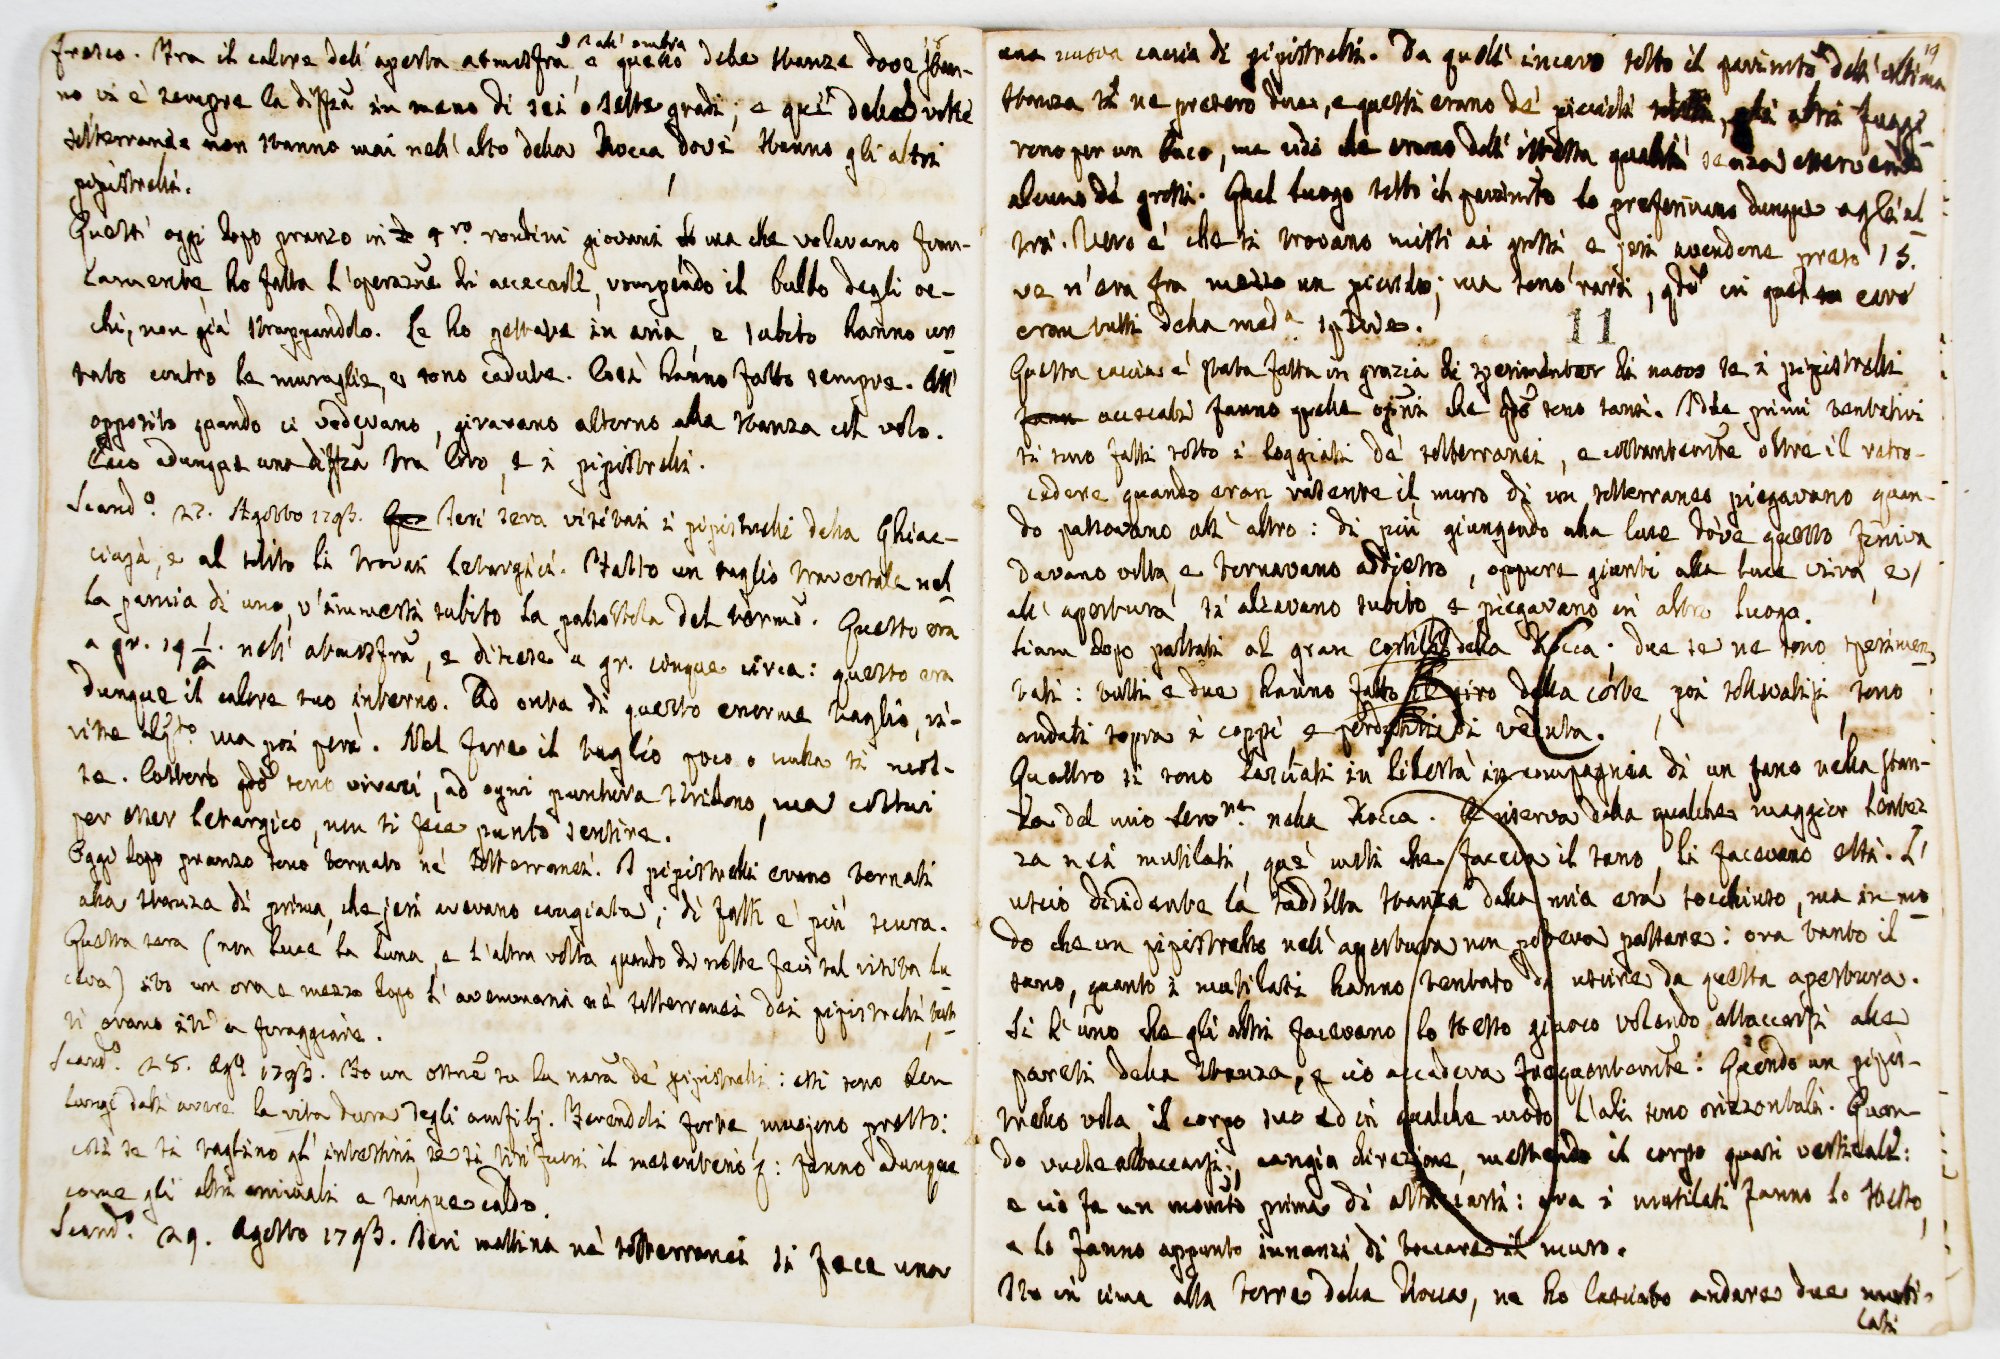 fresco. Fra il calore dell' aperta atmosfra, e quello delle stanze dove stan-
all' ombra
no vi è sempre la diffza in meno di sei o sette gradi; e que' delle volte
sotterranee non stanno mai nell' alto della Rocca dove stanno gli altri
pipistrelli.
Quest' oggi dopo pranzo in 4ro rondini giovani ma che volavano fran-
camente, ho fatta l'operazne di accecarle, rompendo il bulbo degli oc-
chi, non già strappandolo. Le ho gettate in aria, e subito hanno ur
tato contro le muraglie, e sono cadute. Così hanno fatto sempre. All'
opposito quando ci vedevano, giravano attorno alla stanza col volo.
Ecco adunque una diffza tra loro, e i pipistrelli.
Scand.o 27. Agosto 1793. Ieri sera visitati i pipistrelli della Ghiac-
ciaja, e al solito li trovai letargici. Fatto un taglio traversale nel
la pancia di uno, v'immersi subito la pallottola del termo. Questo era
a gr. 19 1/2. nell' atmosfra, e discese a gr. cinque circa: questo era
dunque il calore suo interno. Ad onta di questo enorme taglio, vi-
sse ma poi perì. Nel fare il taglio poco o nulla si mos-
se. Costoro qdo sono vivaci, ad ogni puntura stridono, ma costui
per esser letargico, non si fece punto sentire.
Oggi dopo pranzo sono tornato ne' sotterranei. I pipistrelli erano tornati
alla stanza di prima, che jeri avevano cangiata; di fatti è più scura.
Questa sera (non luce la luna, e l'altra volta quando di notte feci tal visita lu
ceva) ito un ora e mezzo dopo l' avemmaria ne' sotterranei dei pipistrelli, tut-
ti erano iti a foraggiare.
Scand.o 28. Ago. 1793. Fo un ossne su la nara de' pipistrelli: essi sono ben
lungi dall' avere la vita dura degli amfibj. Ferendoli forte, muojono presto:
così se si taglino gl' intestini, se si ferisca il mesenterio: fanno adunque
come gli altri animali a sangue caldo.
Scand.o 29. Agosto 1793. Ieri mattina ne' sotterranei si fece una
19
una nuova caccia di pipistrelli. Da quell' incavo sotto il pavimto dell' ultima
stanza si ne presero due, e questi erano de' piccioli, gli altri fuggi-
rono per un buco, ma vidi che erano dell' istessa qualità senza esservene
alcuno de' grossi. Quel luogo sotto il pavimto lo preferivano dunque agli al
tri. Vero è che si trovano misti ai grossi, e jeri avendone preso 15.
ve n'era fra mezzo un picciolo; ma sono rari, qdo in quel cavo
eran tutti della meda spezie.
11
Questa caccia è stata fatta in grazia di sperimentar di nuovo se i pipistrelli
accecati fanno quelle opni che qdo sono sani. I due primi tentativi
si sono fatti sotto i loggiati de' sotterranei, e costantemte oltre il retro-
cedere quando eran rasente il muro di un sotterraneo piegavano quan-
do passavano all' altro: di più giungendo alla luce dove questo finiva
davano volta, e tornavano addietro, oppure giunti alla luce viva, e
all' apertura si alzavano subito, e piegavano in altro luogo.
Siam dopo passati al gran cortile della Rocca. due se ne sono sperimen-
tati: tutti e due hanno fatto il giro della corte, poi sollevatisi, sono
andati sopra i coppi e perdutisi di veduta.
Quattro si sono lasciati in libertà in compagnia di un sano nella stan-
za del mio nella Rocca. A riserva della qualche maggior lentez
za nei mutilati, que' moti che faceva il sano, li facevano essi. L'
uscio dividente la suddetta stanza dalla mia era socchiuso, ma in mo
do che un pipistrello nell' apertura non poteva passare: ora tanto il
sano, quanto i mutilati hanno tentato di uscire da questa apertura.
Sì l' uno che gli altri facevano lo stesso giuoco volendo attaccarsi alle
pareti della stanza, e ciò accadeva frequentemte: Quando un pipis-
trello vola, il corpo suo ed in qualche modo l'ali sono orizzontali. Quan-
do vuole attaccarsi, cangia direzione, mettendo il corpo quasi verticale:
e ciò fa un momto prima di attaccarsi: ora i mutilati fanno lo stesso,
e lo fanno appunto innanzi di toccare il muro.
Ito in cima alla torre della Rocca, ne ho lasciato andare due muti-
lati